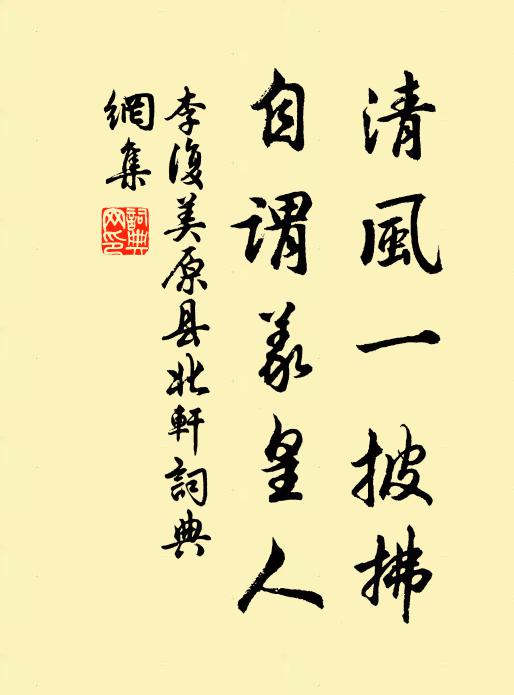 清風一披拂
自謂羲皇人
李復美原县北軒詞典
網集
詞典
网印